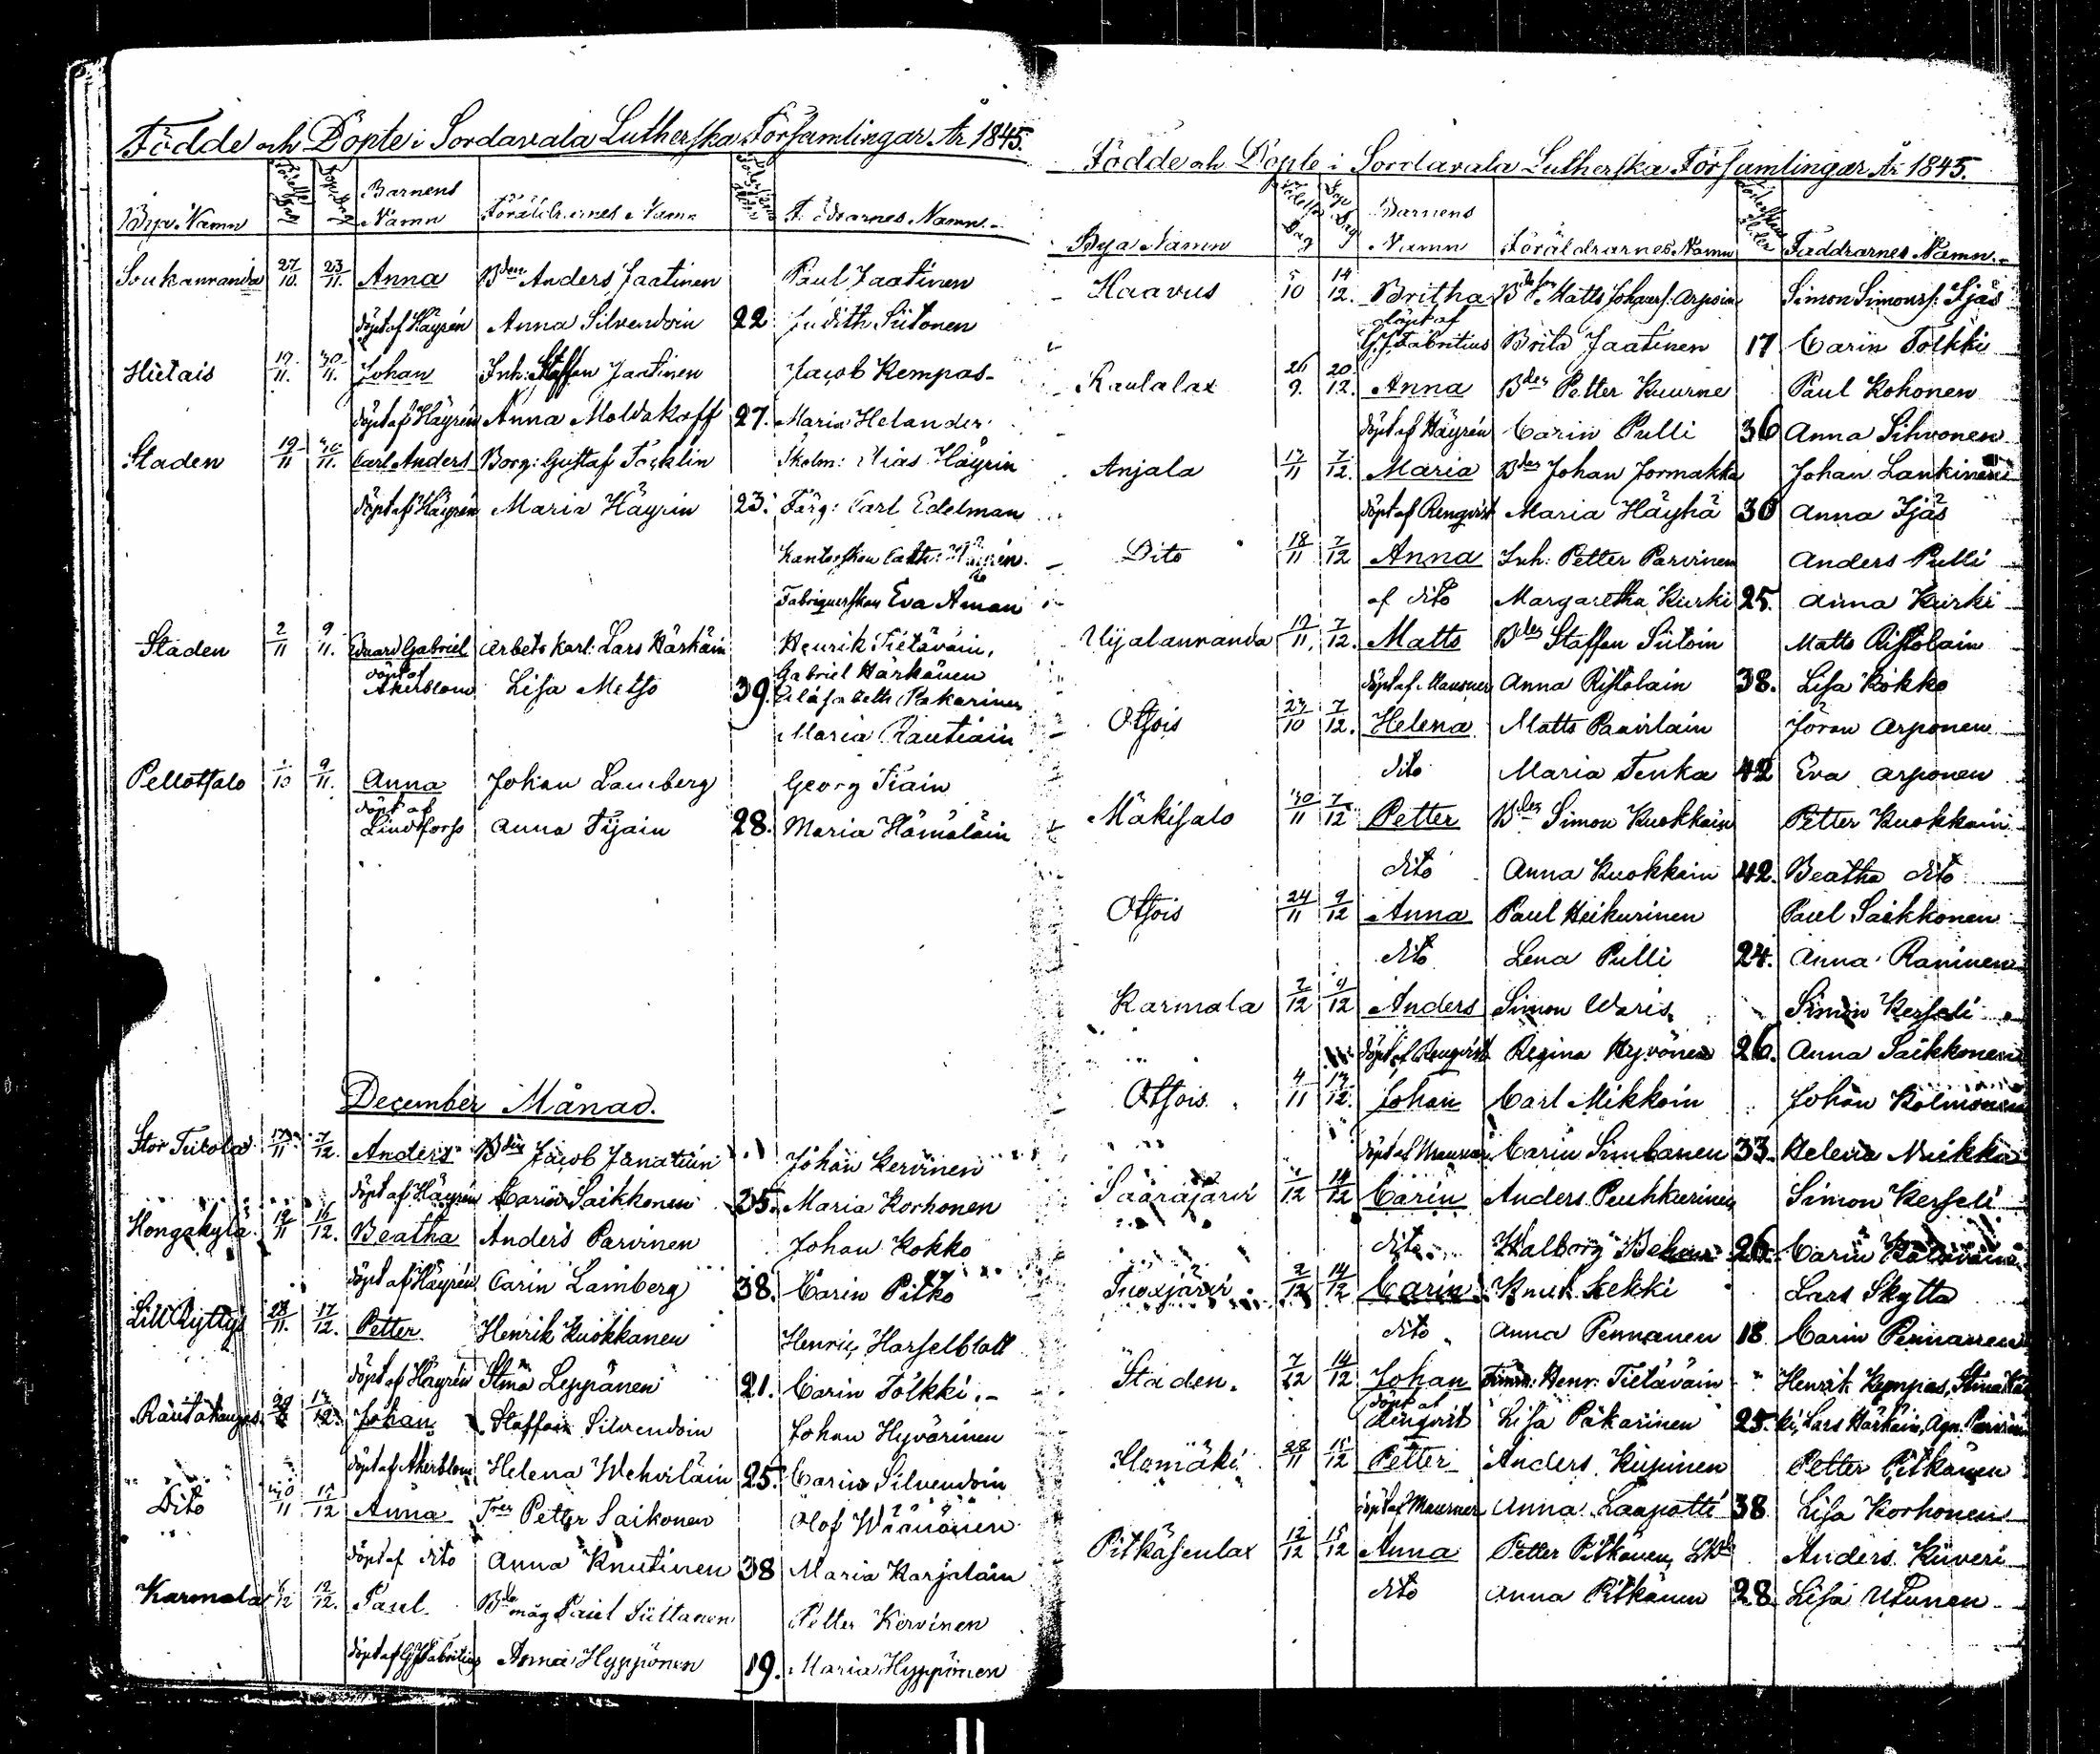 Födde och Döpte i Sordavala Lutherska Församlingar År 1845.
Byar Namn Födelse Dag Döpelse Dag Barnens Namn Föräldrarnes Namn Föderskans Ålder Faddrarnes Namn.
Soukanranda 27/10. 23/11. Anna Bden Anders Jaatinen Paul Jaatinen
döpt af Häyrén Anna Silvendoin 22 Judith Siitonen
Hietais 19/11. 30/11. Johan Inh: Staffan Jaatinen Jacob Kempas
döpt af Häyrén Anna Moldakoff 27. Maria Helander
Staden 19/11 30/11. Carl Anders Borg: Gustaf Tocklin Skolm: Elias Häyrin
döpt af Häyrén Maria Häyrin 23. Färg: Carl Edelman
Kantorskan Cath: Häyrén.
Fabriquerskan Eva Aman
Staden 2/11 9/11. Eduard Gabriel Arbets Karl: Lars Härkäin Henrik Tietäväin,
döpt af Gabriel Härkönen
Åkerblom Lisa Metso 39. Elisabeth Pakarinen
Maria Rautiain
Pellotsalo /10 9/11. Anna Johan Lamberg Georg Tiain
döpt af
Lindfors Anna Tijain 28. Maria Hämäläin
December Månad.
Stor Tiitola 17/11 7/12. Anders Bden Jacob Janatuin Johan Kervinen
döpt af Häyrén Carin Saikkonen 35. Maria Korhonen
Hongakylä 19/11 16/12. Beatha Anders Parvinen Johan Kokko
döpt af Häyrén Carin Lamberg 38. Carin Pitko
Lill Ryttys 28/11. 17/12. Petter Henrik Kuokkanen Henric Harselblatt
döpt af Häyrén Stina Leppänen 21. Carin Tölkki
Rautakangas Johan Staffan Silvendoin Johan Hyvärinen
döpt af Åkerblom Helena Wehviläin 25. Carin Silvendoin
Dito 30/11 12/12 Anna Petter Saikonen Olof Wäänänen
döpt af dito Anna Knutinen 38 Maria Karjalain
Karmala 6/12 12/12. Paul. Bde måg Paul Siittanen Petter Kervinen
döpt af GJ Fabritius Anna Hyppönen 19. Maria Hyppönen
Födde och Döpte i Sordavala Lutherska Församlingar År 1845.
Bya Namn Födelse Dag Döp Dag Barnens Namn Föräldrarnes Namn Föderskans Ålder Faddrarnes Namn.
Haavus 5/10 14/12. Britha Matts Johansf: Arpoin Simon Simonsf: Ijäs
döpt af
G.J. Fabritius Brita Jaatinen 17 Carin Tölkki
Raulalax 26/9. 20/12. Anna Bden Petter Kuurne Paul Kohonen
döpt af Häyrén Carin Pulli 36 Anna Sihvonen
Anjala 17/11 7/12. Maria Bden Johan Jormakka Johan Lankinen
döpt af Renqvist Maria Häyhä 30 Anna Ijäs
Dito 18/11 7/12 Anna Inh: Petter Parvinen Anders Pulli
af dito Margaretha Kurki 25. Anna Kurki
Uijalanranda 19/11. 7/12. Matts Bden Staffan Siitoin Matts Ristolain
döpt af Mausner Anna Ristolain 38. Lisa Kokko
Otsois 23/10 7/12. Helena Matts Paavilain Jöran Arponen
dito Maria Tenka 42 Eva Arponen
Mäkisalo 30/11 7/12 Petter Bden Simon Kuokkain Petter Kuokkain
dito Anna Kuokkain 42. Beatha dito
Otsois 24/11 9/12 Anna Paul Heikurinen Paul Saikkonen
dito Lena Pulli 24. Anna Raninen
Karmala 2/12 9/12 Anders Simon Waris Simon Kerseli
döpt af Renqvist Regina Hyvönen 26. Anna Saikkonen
Otsois. 4/11 13/12. Johan Carl Mikkoin Johan Kolmonen
döpt af Mausner Carin Simbanen 33. Helena Nuikka
Saarajärvi /12 14/12 Carin Anders Puhkurinen Simon Kerseli
dito Walborg 26. Carin
Tuoxjärvi 2/12 14/12 Carin Knut Lekki Lars Skytta
dito Anna Pennanen 18. Carin Pennanen
Staden. 7/12 14/12 Johan Timm: Henr: Tietäväin Henrik Kempas, Stina
döpt af
Rengvist Lisa Pakarinen 25. Lars Härkäin, Agn. Parvinen
Hamäki 28/11 15/12 Petter Anders Kupinen Petter Pitkänen
döpt af Mausner Anna Laapotti 38 Lisa Korhonen
Pitkäsenlax 12/12 15/12 Anna Petter Pitkänen, Anders Kiiveri
dito Anna Pitkänen 28. Lisa Utunen